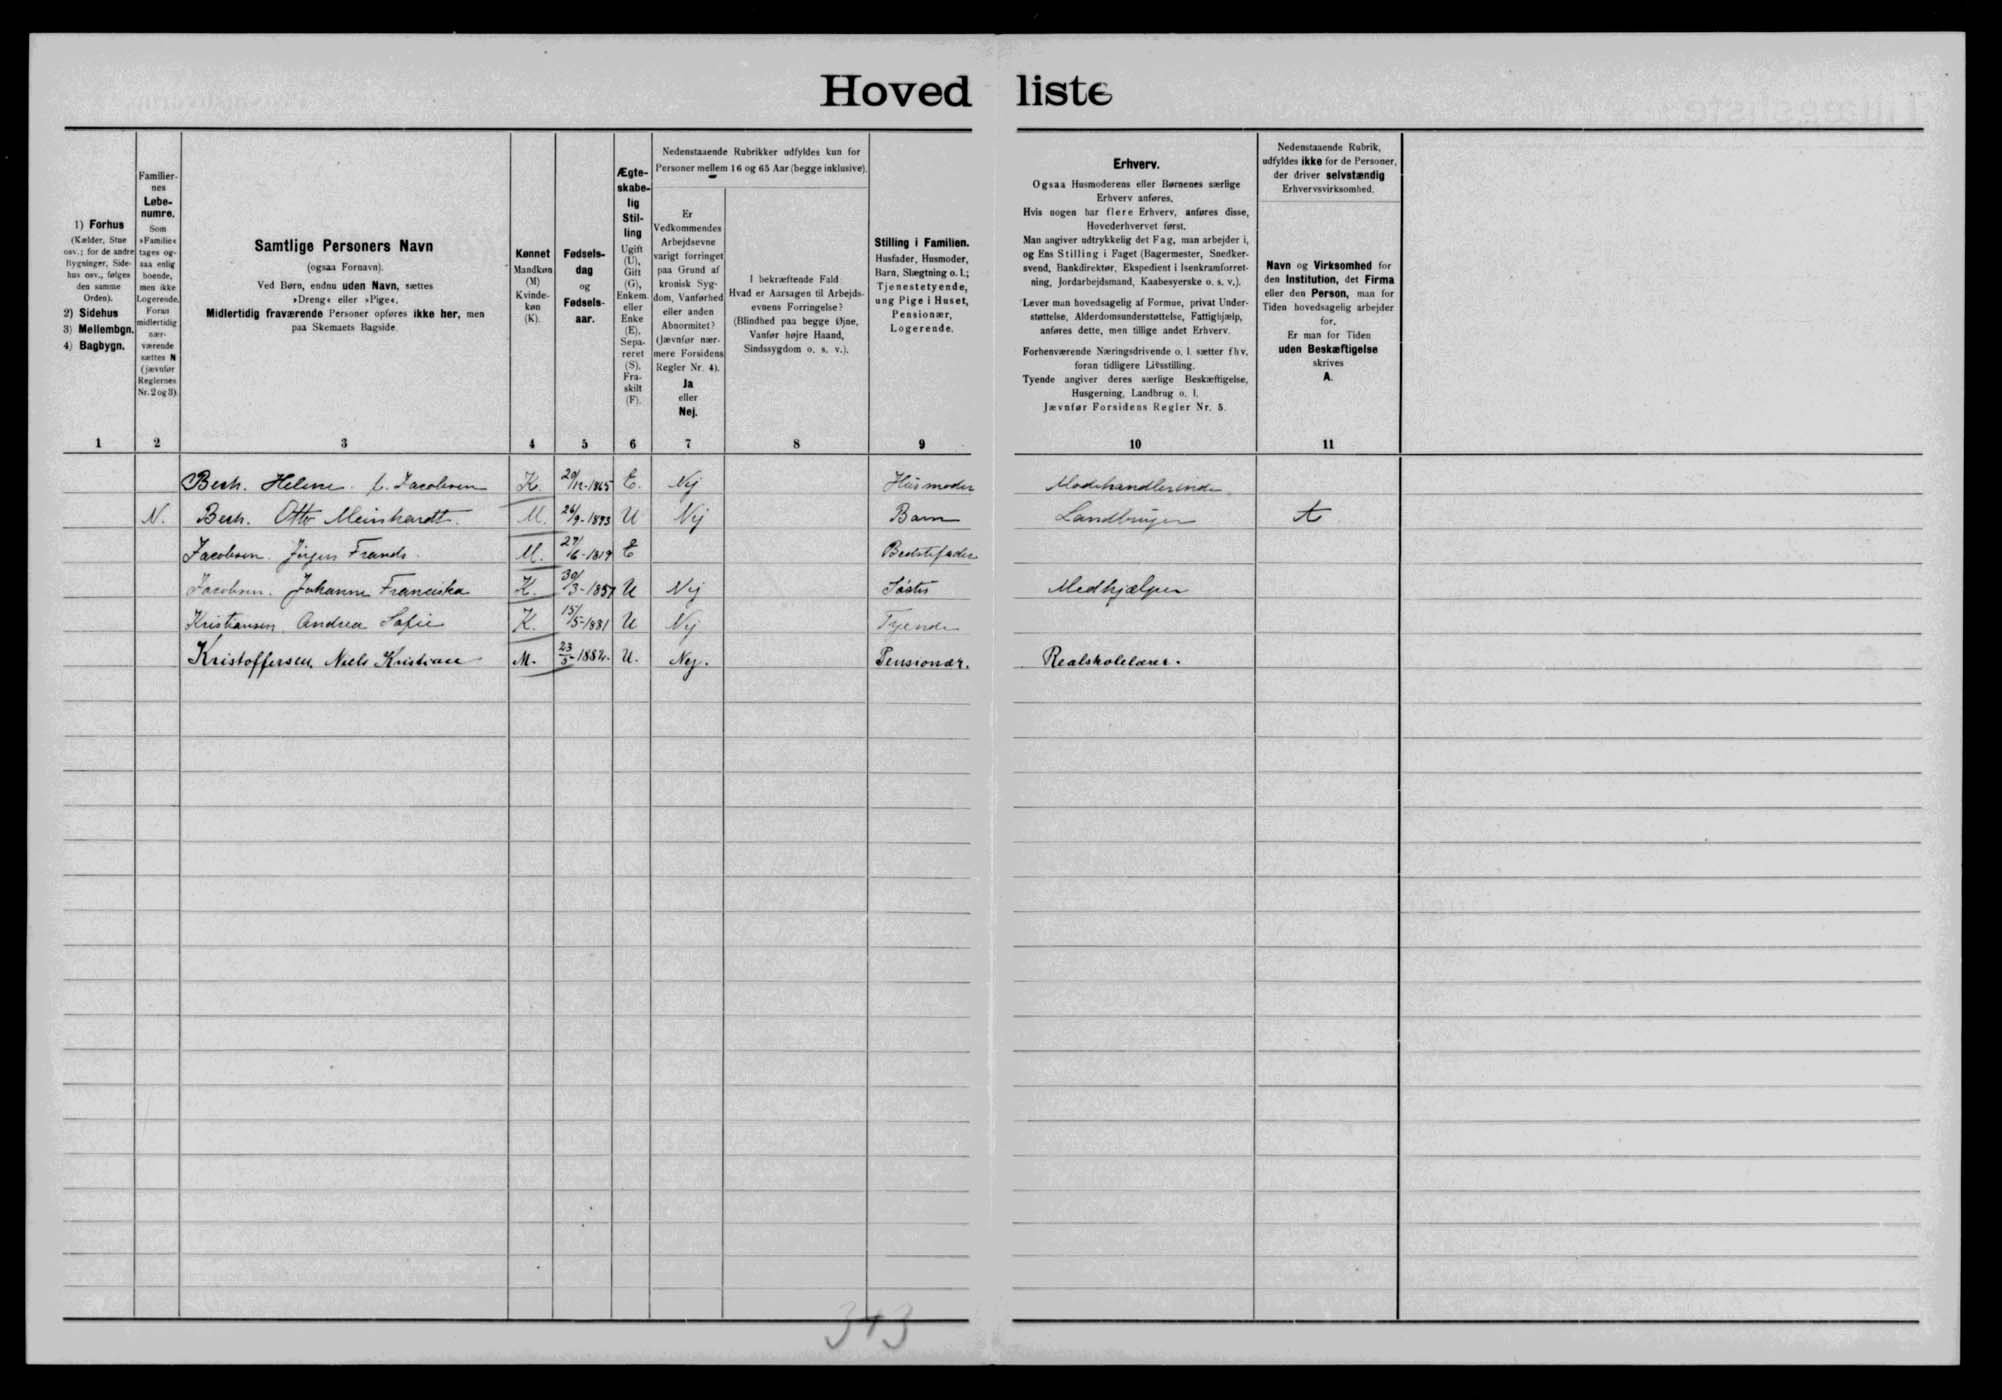 Hovedliste
1) Forhus
(Kælder, Stue
osv.; for de andre
Bygninger, Side-
hus osv., følges
den samme
Orden).
2) Sidehus
3) Mellembgn.
4) Bagbygn.
1
Familier-
nes
Løbe-
numre.
Som
»Familie«
tages og-
saa enlig
boende,
men ikke
Logerende.
Foran
midlertidig
nær-
værende
sættes N
(jævnfør
Reglernes
Nr. 2 og 3).
2
Samtlige Personers Navn
(ogsaa Fornavn).
Ved Børn, endnu uden Navn, sættes
»Dreng« eller »Pige«.
Midlertidig fraværende Personer opføres ikke her, men
paa Skemaets Bagside.
3
Kønnet
Mandkøn
(M)
Kvinde-
køn
(K).
4
Fødsels-
dag
og
Fødsels-
aar.
5
Ægte-
skabe-
lig
Stil-
ling
Ugift
(U),
Gift
(G),
Enkem.
eller
Enke
(E),
Sepa-
reret
(S),
Fra-
skilt
(F).
6
Nedenstaaende Rubrikker udfyldes kun for
Personer mellem 16 og 65 Aar (begge inklusive).
Er
Vedkommendes
Arbejdsevne
varigt forringet
paa Grund af
kronisk Syg-
dom, Vanførhed
eller anden
Abnormitet?
(Jævnfør nær-
mere Forsidens
Regler Nr. 4).
Ja
eller
Nej.
7
I bekræftende Fald.
Hvad er Aarsagen til Arbejds-
evnens Forringelse?
(Blindhed paa begge Øjne,
Vanfør højre Haand,
Sindssygdom o. s. v.).
8
Stilling i Familien.
Husfader, Husmoder,
Barn, Slægtning o. l.;
Tjenestetyende,
ung Pige i Huset,
Pensionær,
Logerende.
9
Erhverv.
Ogsaa Husmoderens eller Børnenes særlige
Erhverv anføres.
Hvis nogen har flere Erhverv, anføres disse,
Hovederhvervet først.
Man angiver udtrykkelig det Fag, man arbejder i,
og Ens Stilling i Faget (Bagermester, Snedker-
svend, Bankdirektør, Ekspedient i Isenkramforret-
ning, Jordarbejdsmand, Kaabesyerske o. s. v.).
Lever man hovedsagelig af Formue, privat Under-
støttelse, Alderdomsunderstøttelse, Fattighjælp,
anføres dette, men tillige andet Erhverv.
Forhenværende Næringsdrivende o. l. sætter fhv.
foran tidligere Livsstilling.
Tyende angiver deres særlige Beskæftigelse,
Husgerning, Landbrug o. l.
Jævnfør Forsidens Regler Nr. 5.
10
Nedenstaaende Rubrik,
udfyldes ikke for de Personer,
der driver selvstændig
Erhvervsvirksomhed.
Navn og Virksomhed for
den Institution, det Firma
eller den Person, man for
Tiden hovedsagelig arbejder
for.
Er man for Tiden
uden Beskæftigelse
skrives
A.
11
Besh. Helene f. Jacobsen K. 20/12-1865 E. Nej Husmoder Modehandlerinde
N. Besh. Otto Meinhardt. M. 26/9-1893 U Nej Barn Landbruger A
Jacobsen. Jörgen Frands. M. 27/6-1819 E Bedstefader
Jacobsen. Johanne Franciska K. 30/3-1857 U Nej Søster Medhjælper
Kristiansen. Andrea Sofie K. 15/5-1881 U Nej Tyende
Kristoffersen, Niels Kristian M. 23/5-1882. U. Nej. Pensionær. Realskolelærer.
343